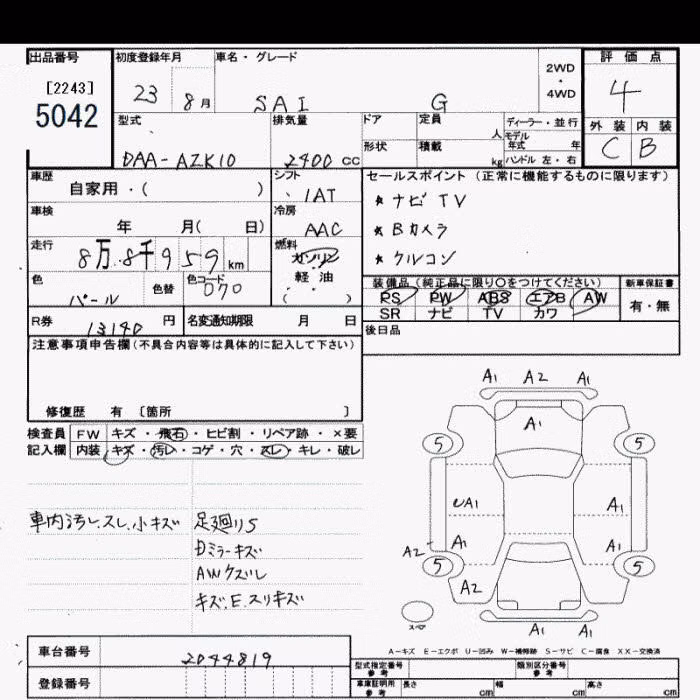 出品番号 初度登録年月 車名・グレード 2WD・4WD 評価点
[2243]
5042
23 8月 SAI G 4
型式 排気量 ドア 定員 人 ディーラー・並行 外装 内装
形状 積載 kg モデル年式 年
ハンドル 左・右
DAA-AZK10 2400 cc C B
車歴 シフト セールスポイント (正常に機能するものに限ります)
自家用・( ) IAT ★ナビ TV
車検 冷房 ★Bカメラ
年 月( 日) AAC
走行 燃料 ★クルコン
8万8千959 km ガソリン
軽油
( )
色 色替 色コード 装備品(純正品に限り○をつけてください) 新車保証書
パール 070 PS PW ABS エアB AW 有・無
SR ナビ TV カワ
R券 13140 円 名変通知期限 月 日 後日品
注意事項申告欄(不具合内容等は具体的に記入して下さい)
修復歴 有 [箇所 ]
検査員 FW キズ・飛石・ヒビ割・リペア跡・×要
記入欄 内装 キズ・汚レ・コゲ・穴・スレ・キレ・破レ
車内汚レ、スレ、小キズ 足廻り5
Dミラーキズ
AWクズレ
キズ、E、スリキズ
A1 A2 A1
A1
5 5
A1 A1
A2 A1 A1
5 5
A2
スペア
A1 A1
A-キズ E-エクボ U-凹み W-補修跡 S-サビ C-腐食 XX-交換済
車台番号 2044819
型式指定番号 参考 類別区分番号 参考
登録番号
車庫証明用 参考 長さ cm 幅 cm 高さ cm